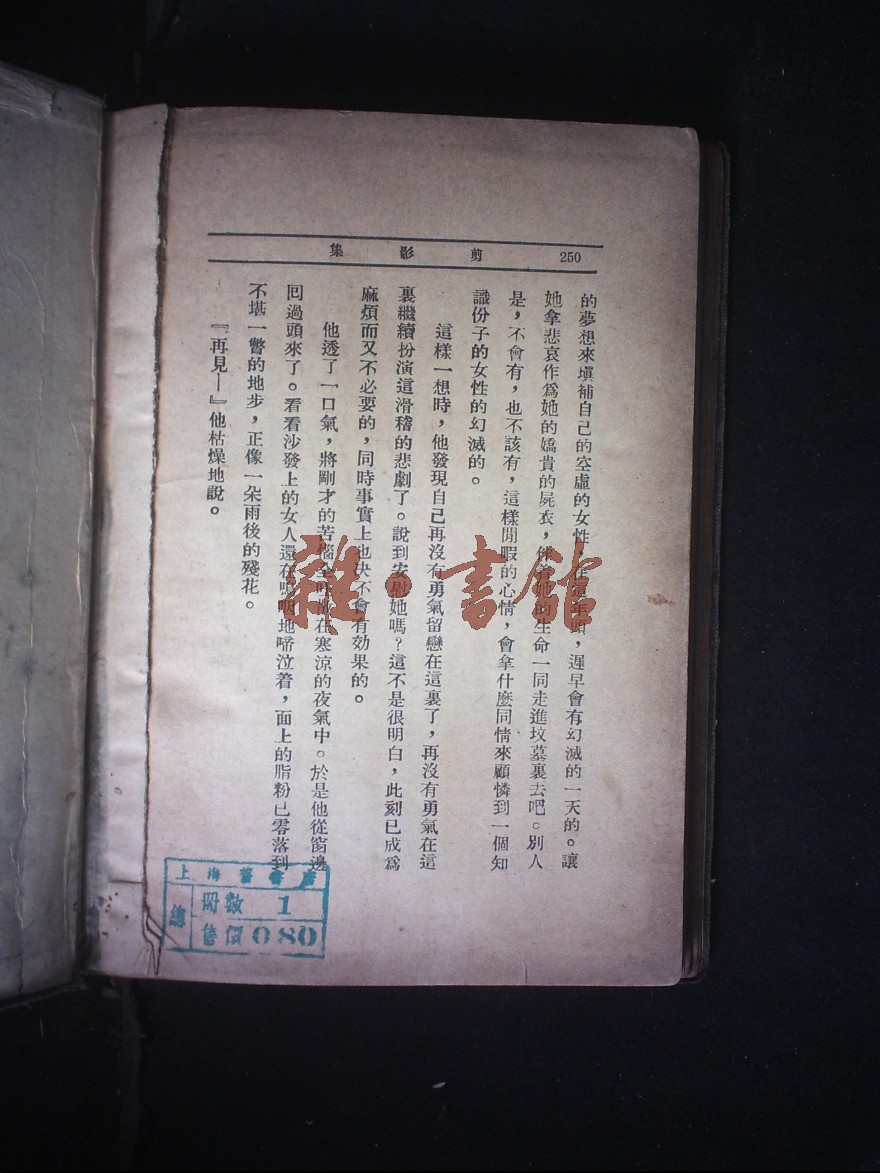 250 剪影集
的夢想來塡補自己的空虛的女性，在這年頭，遲早會有幻滅的一天的。讓
她拿悲哀作爲她的嬌貴的屍衣，伴着她的生命一同走進坟墓裏去吧。別人
是，不會有，也不該有，這樣閒暇的心情，會拿什麽同情來顧憐到一個知
識份子的女性的幻滅的。
這樣一想時，他發現自己再沒有勇氣留戀在這裏了，再沒有勇氣在這
裏繼續扮演這滑稽的悲劇了。說到安慰她嗎？這不是很明白，此刻已成爲
麻煩而又不必要的，同時事實上也决不會有效果的。
他透了一口氣，將剛才的苦惱全在寒涼的夜氣中。於是他從窗邊
囘過頭來了。看看沙發上的女人還在嗚咽地啼泣着，面上的脂粉已零落到
不堪一瞥的地步，正像一朵雨後的殘花。
『再見—』他枯燥地說。
雜·書館
上海舊書店
總
冊數 1
售價 0 80